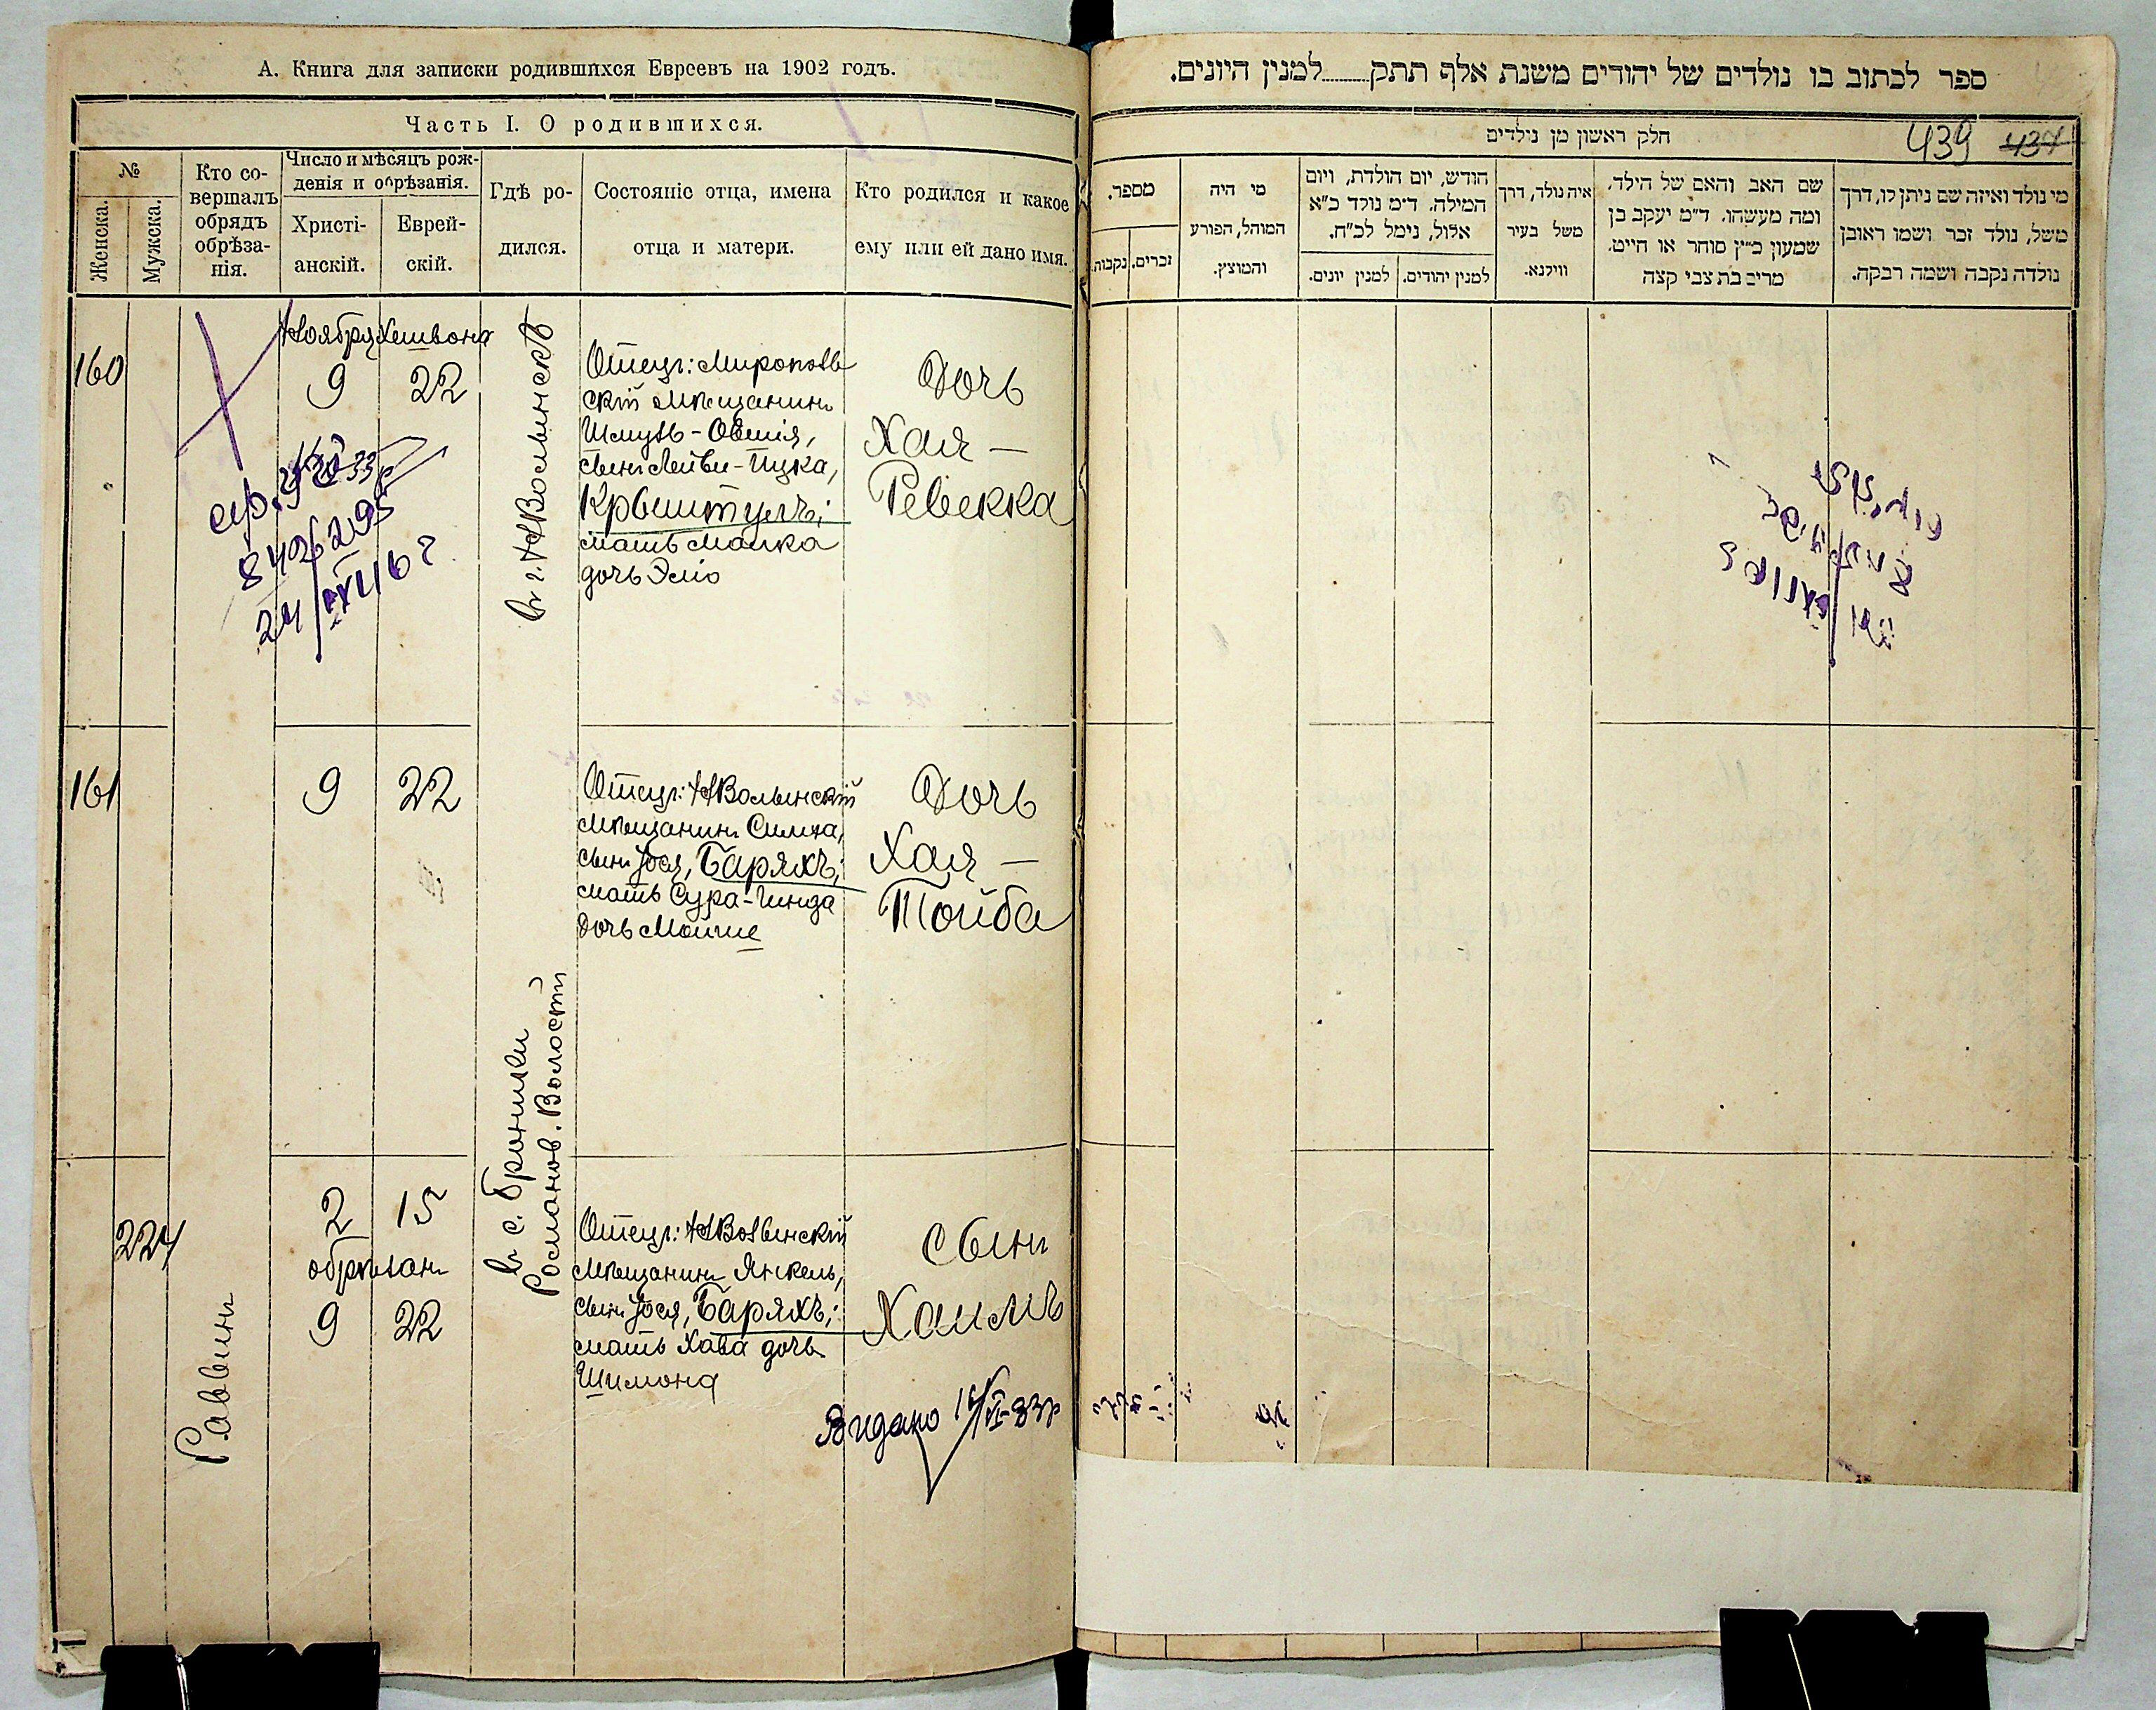 А. Книга для записки родившихся Евреевъ на 1902 годъ.
Часть I. О родившихся.
№
Женска.
Мужска.
Кто со-
вершалъ
обрядъ
обрѣза-
нія.
Число и мѣсяцъ рож-
денія и обрѣзанія.
Христі-
анскій.
Еврей-
скій.
Гдѣ ро-
дился.
Состояніе отца, имена
отца и матери.
Кто родился и какое
ему или ей дано имя.
160
Ноября Хешвона
9 22
в г. НВолынскѣ
Отецъ: Мирополь
скій мѣщанинъ
Шмуль-Овшія,
сынъ Лейви-Ицка,
Крыштулъ;
мать Малка
дочь Эліо
Дочь
Хая —
Ревекка
161
9 22
Отецъ: НВолынскій
мѣщанинъ Симха,
сынъ Іося, Баряхъ;
мать Сура-Гинда
дочь Моише
Дочь
Хая —
Тойба
в с. Броники
Романов. Волости
224
Раввинъ
2 15
обрѣзан
9 22
Отецъ: НВолынскій
мѣщанинъ Янкель,
сынъ Іося, Баряхъ;
мать Хава дочь
Шимона
Сынъ
Хаимъ
Видано
ספר לכתוב בו נולדים של יהודים משנת אלף תתק למנין היונים.
חלק ראשון מן נילדים
439 437
מי נולד ואיזה שם ניתן לו, דרך
משל, נולד זכר ושמו ראובן
נולדה נקבה ושמה רבקה.
שם האב והאם של הילד,
ומה מעשהו. ד״מ יעקב בן
שמעון כ״ץ סוחר או חייט.
מרים בת צבי קצה
איה נולד, דרך
משל בעיר
ווילנא.
הודש, יום הולדת, ויום
המילה. ד״מ נולד כ״א
אלול, נימל לכ״ח.
למנין יהודים.
למנין יונים.
מי היה
המוהל, הפורע
והמוצץ.
מספר.
זכרים.
נקבות.